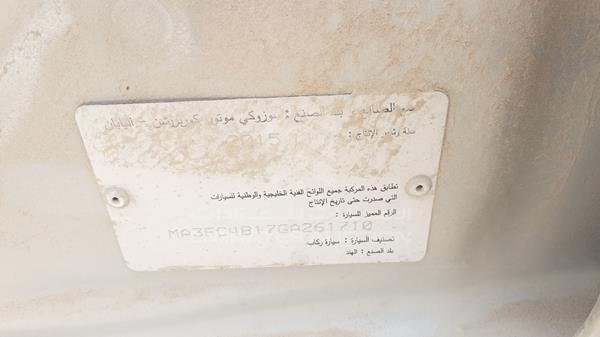 الصانع و بلد الصنع : سوزوكي موتور كوربرشن - اليابان
سنة وشهر الإنتاج : 2015
تطابق هذه المركبة جميع اللوائح الفنية الخليجية والوطنية للسيارات
التي صدرت حتى تاريخ الإنتاج
الرقم المميز للسيارة :
MA3FC4B17GA261710
تصنيف السيارة : سيارة ركاب
بلد الصنع : الهند